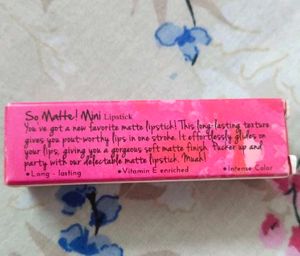 So Matte! Mini Lipstick
You've got a new favorite matte lipstick! This long-lasting texture
gives you pout-worthy lips in one stroke. It effortlessly glides on
your lips, giving you a gorgeous soft matte finish. Pucker up and
party with our delectable matte lipstick. Muah!
• Long - lasting • Vitamin E enriched • Intense Color